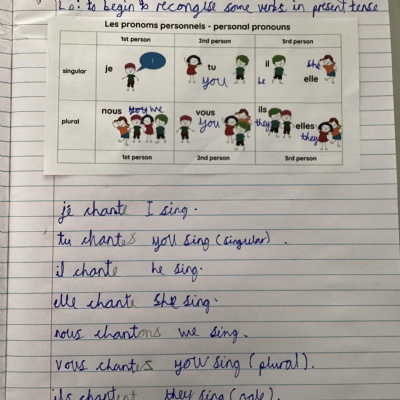 Lo: to begin to recongise some verbs in present tense
Les pronoms personnels - personal pronouns
1st person 2nd person 3rd person
singular je I tu you il he she elle
plural nous you we vous you ils they elles they
1st person 2nd person 3rd person
je chante I sing.
tu chantes you sing (singular).
il chante he sing.
elle chante she sing.
nous chantons we sing.
vous chantes you sing (plural).
ils chantent they sing (male).